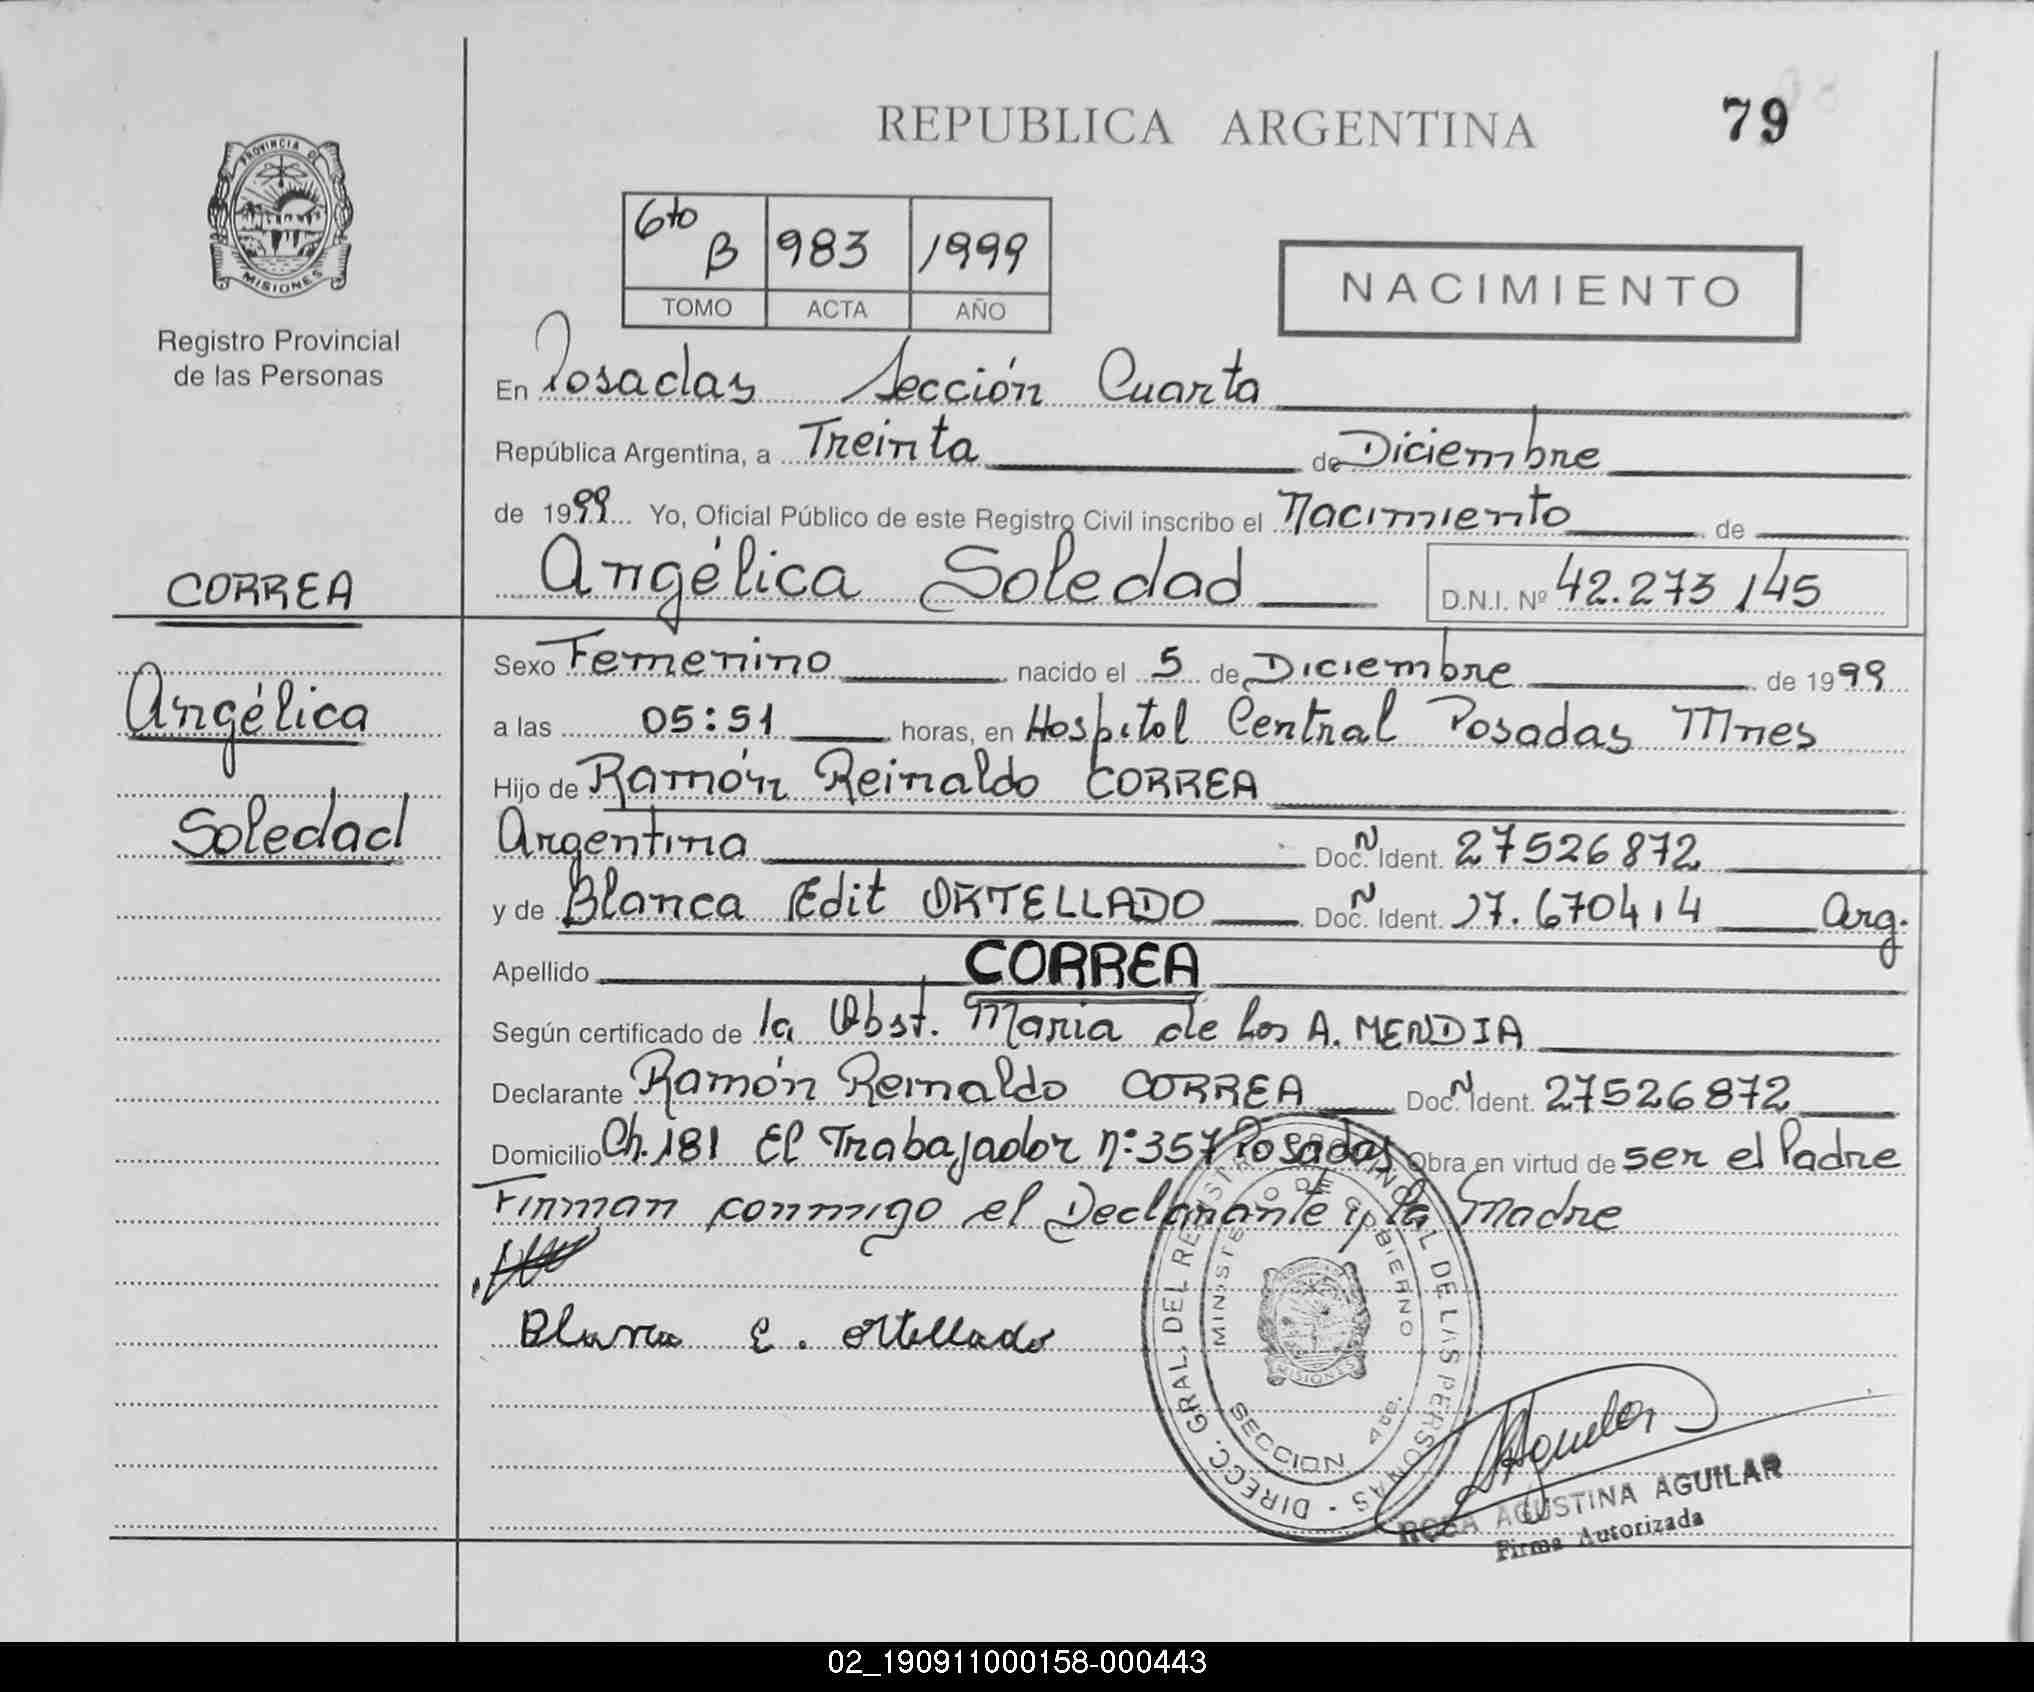 REPUBLICA ARGENTINA
79
PROVINCIA DE
MISIONES
Registro Provincial
de las Personas
6to B 983 1999
TOMO ACTA AÑO
NACIMIENTO
En Posadas Sección Cuarta
República Argentina, a Treinta de Diciembre
de 1999 Yo, Oficial Público de este Registro Civil inscribo el Nacimiento de
Angélica Soledad D.N.I. Nº 42.273145
CORREA
Angélica
Soledad
Sexo Femenino nacido el 5 de Diciembre de 1999
a las 05:51 horas, en Hospital Central Posadas Mnes
Hijo de Ramón Reinaldo CORREA
Argentina Doc. N Ident. 27526872
y de Blanca Edit ORTELLADO Doc. N Ident. 17.670414 Arg.
Apellido CORREA
Según certificado de la Obst. Maria de Los A. MENDIA
Declarante Ramón Reinaldo CORREA Doc. N Ident. 27526872
Domicilio Ch. 181 El Trabajador Nº 357 Posadas Obra en virtud de ser el Padre
Firman conmigo el Declarante y la Madre
Blanca E. Ortellado
DIRECC. GRAL. DEL REGISTRO PROVINCIAL DE LAS PERSONAS -
MINISTERIO DE GOBIERNO
SECCION 4ta.
MISIONES
ROSA AGUSTINA AGUILAR
Firma Autorizada
02_190911000158-000443